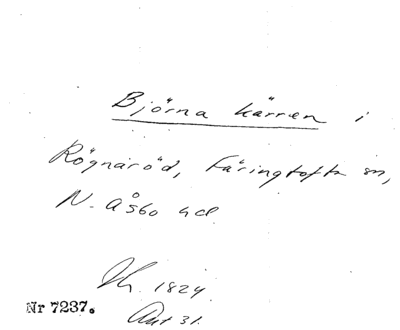 Björna kärren i
Rögnaröd, Färingtofta sn,
N. Åsbo hd.
1824.
Akt 31.
Nr 7237.